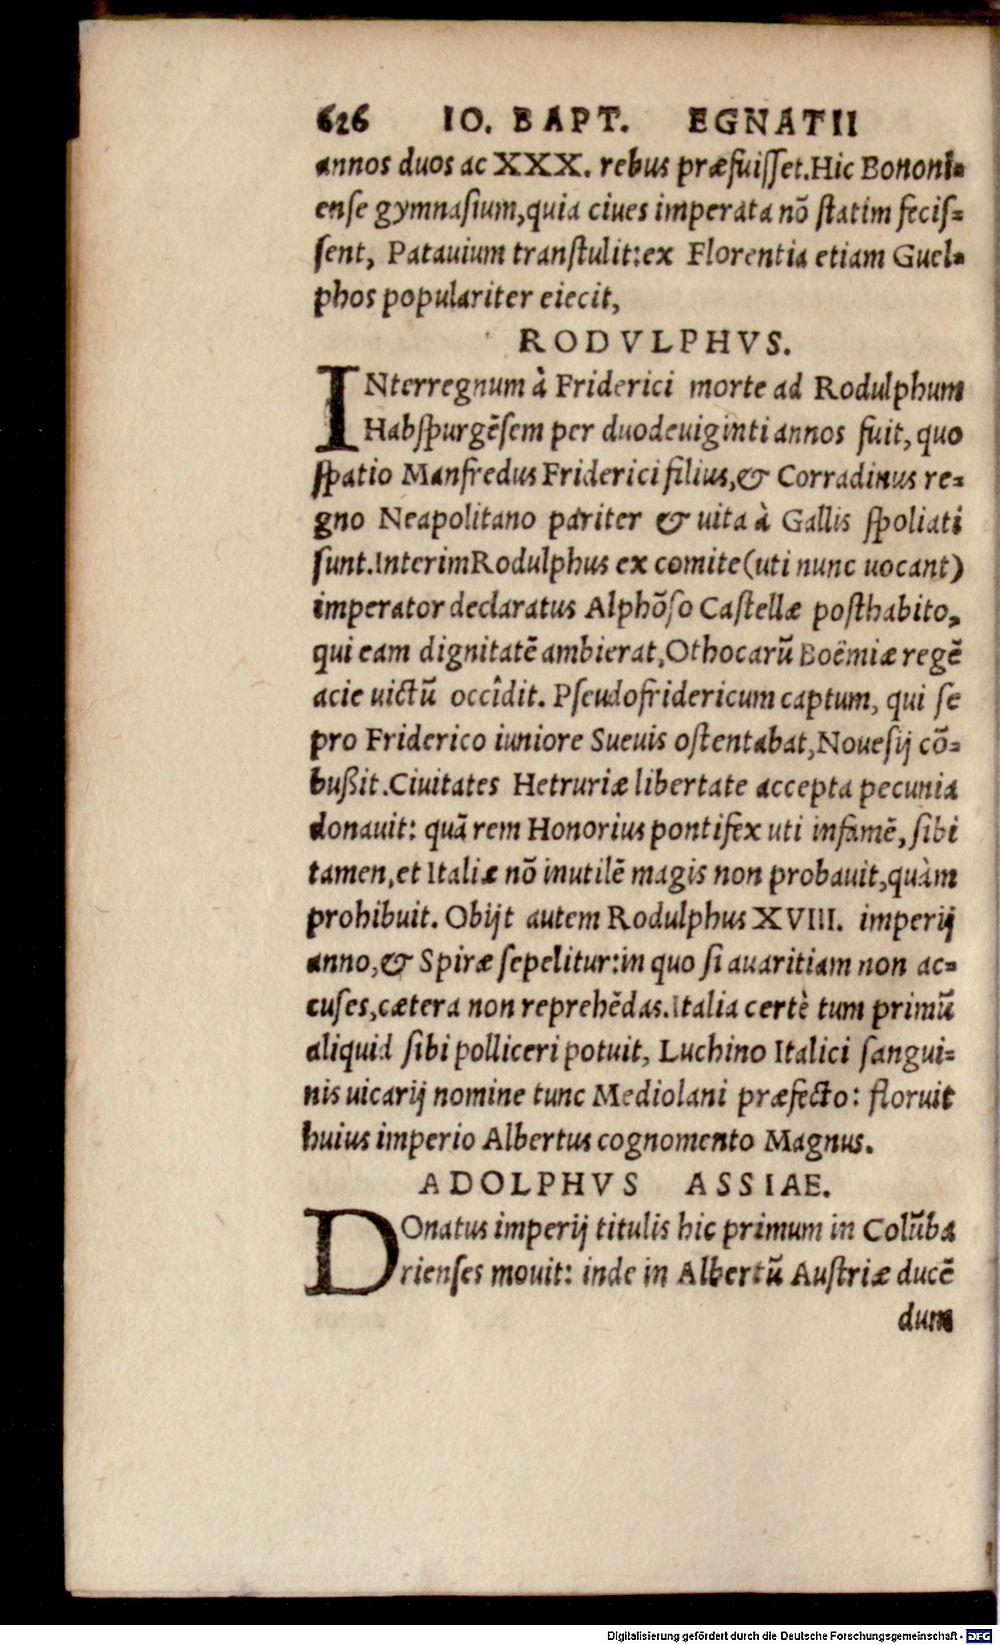 626 IO. BAPT. EGNATII
annos duos ac XXX. rebus præfuiſſet.Hic Bononi-
enſe gymnaſium,quia ciues imperata nō ſtatim feciſ-
ſent, Patauium tranſtulit:ex Florentia etiam Guel-
phos populariter eiecit,
RODVLPHVS.
INterregnum à Friderici morte ad Rodulphum
Habſpurgēſem per duodeuiginti annos fuit, quo
ſpatio Manfredus Friderici filius,& Corradinus re-
gno Neapolitano pariter & uita à Gallis ſpoliati
ſunt.Interim Rodulphus ex comite(uti nunc uocant)
imperator declaratus Alphōſo Caſtellæ poſthabito,
qui eam dignitatē ambierat,Othocarū Boëmiæ regē
acie uictū occîdit. Pſeudofridericum captum, qui ſe
pro Friderico iuniore Sueuis oſtentabat,Noueſij cō-
bußit.Ciuitates Hetruriæ libertate accepta pecunia
donauit: quā rem Honorius pontifex uti infamē, ſibi
tamen,et Italiæ nō inutilē magis non probauit,quàm
prohibuit. Obijt autem Rodulphus XVIII. imperij
anno,& Spiræ ſepelitur:in quo ſi auaritiam non ac-
cuſes,cætera non reprehēdas.Italia certè tum primū
aliquid ſibi polliceri potuit, Luchino Italici ſangui-
nis uicarij nomine tunc Mediolani præfecto: floruit
huius imperio Albertus cognomento Magnus.
ADOLPHVS ASSIAE.
DOnatus imperij titulis hic primum in Colūba
rienſes mouit: inde in Albertū Auſtriæ ducē
dum
Digitalisierung gefördert durch die Deutsche Forschungsgemeinschaft - DFG